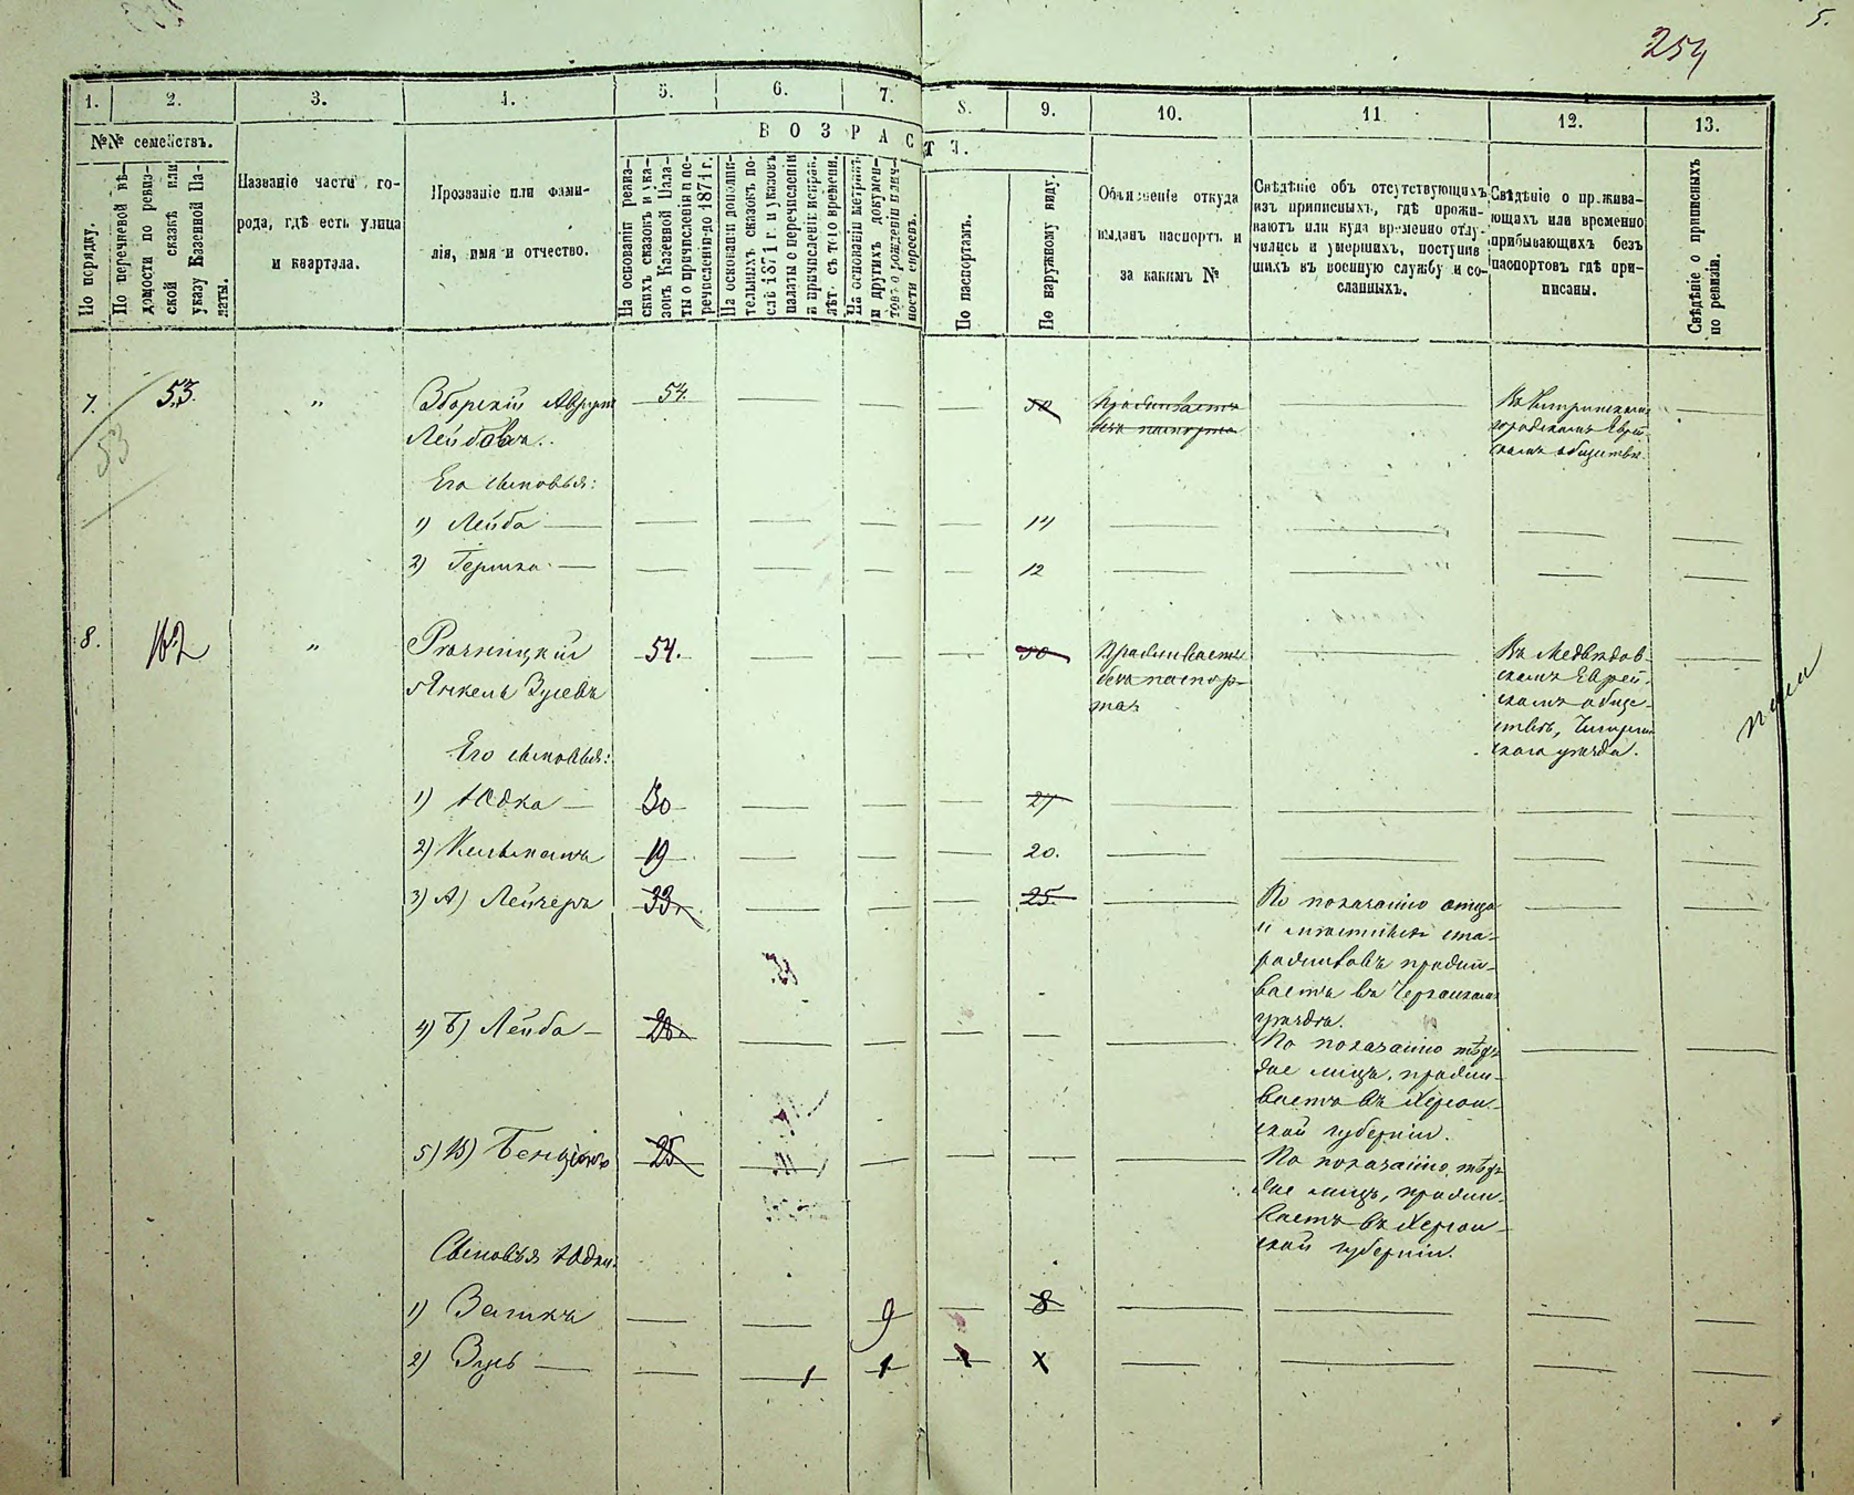 5.
254
1. 2. 3. 4. 5. 6. 7. 8. 9. 10. 11 12. 13.
№№ семействъ.
По порядку.
По перечневой вѣ-
домости по ревиз-
ской сказкѣ или
указу Казенной Па-
латы.
Названіе части го-
рода, гдѣ есть улица
и квартала.
Прозваніе или фами-
лія, имя и отчество.
ВОЗРАСТЪ.
На основаніи ревиз-
скихъ сказокъ и ука-
зовъ Казенной Пала-
ты о причисленіи и пе-
речисленіи до 1871 г.
На основаніи дополни-
тельныхъ сказокъ по-
слѣ 1871 г. и указовъ
палаты о перечисленіи
и причисленіи исправ.
лѣт. съ того времени.
На основаніи метрикъ
и другихъ докумен-
товъ о рожденіи и лич-
ности евреевъ.
По паспортамъ.
По наружному виду.
Объясненіе откуда
выданъ паспортъ и
за какимъ №
Свѣдѣніе объ отсутствующихъ
изъ приписныхъ, гдѣ прожи-
ваютъ или куда временно отлу-
чились и умершихъ, поступив
шихъ въ военную службу и со-
сланныхъ.
Свѣдѣніе о прожива-
ющихъ или временно
прибывающихъ безъ
паспортовъ гдѣ при-
писаны.
Свѣдѣніе о приписныхъ
по ревизіи.
7. 53. " Зборскій Аврумъ 54. 50 Проживаетъ
Лейбовъ. безъ паспорта
53
Въ Чигиринскомъ
городскомъ Еврей-
скомъ обществѣ.
Его сыновья:
1) Лейба 14
2) Гершко 12
8. 162 " Рѣчицкій 54. 50 Проживаетъ
Янкель Зусевъ безъ паспор-
та
Въ Медвѣдов-
скомъ Еврей-
скомъ обще-
ствѣ, Чигирин
скаго уѣзда.
Его сыновья:
1) Юдка 30 27
2) Кельманъ 19 20.
3) А) Лейзеръ 33. 25.
По показанію отца
и мѣстныхъ ста-
рожиловъ прожи-
ваетъ въ Черкаскомъ
уѣздѣ.
4) Б) Лейба 28.
По показанію тѣхъ
же лицъ, прожи-
ваетъ въ Херсон-
ской губерніи.
5) В) Бенціонъ 25
По показанію тѣхъ
же лицъ, прожи-
ваетъ въ Херсон-
ской губерніи.
Сыновья Юдки:
1) 9 8
2) Зусь 1 1 1 X